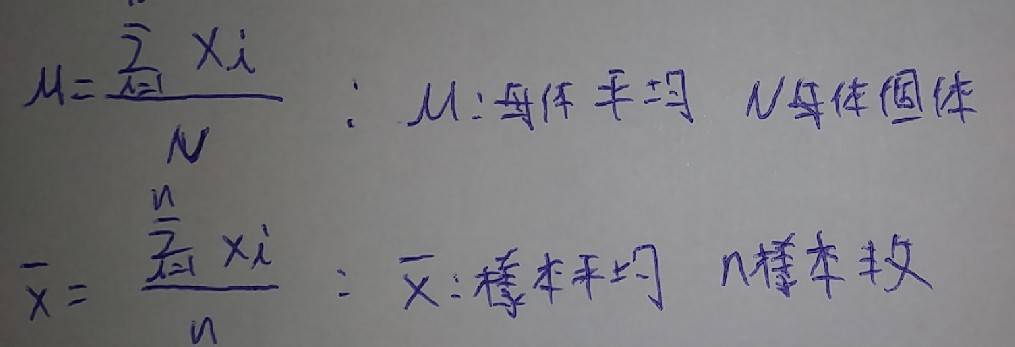 μ = Σ i=1 Xi / N : μ:母体平均 N母体個体
x̄ = Σ i=1 n xi / n : x̄:樣本平均 n樣本数